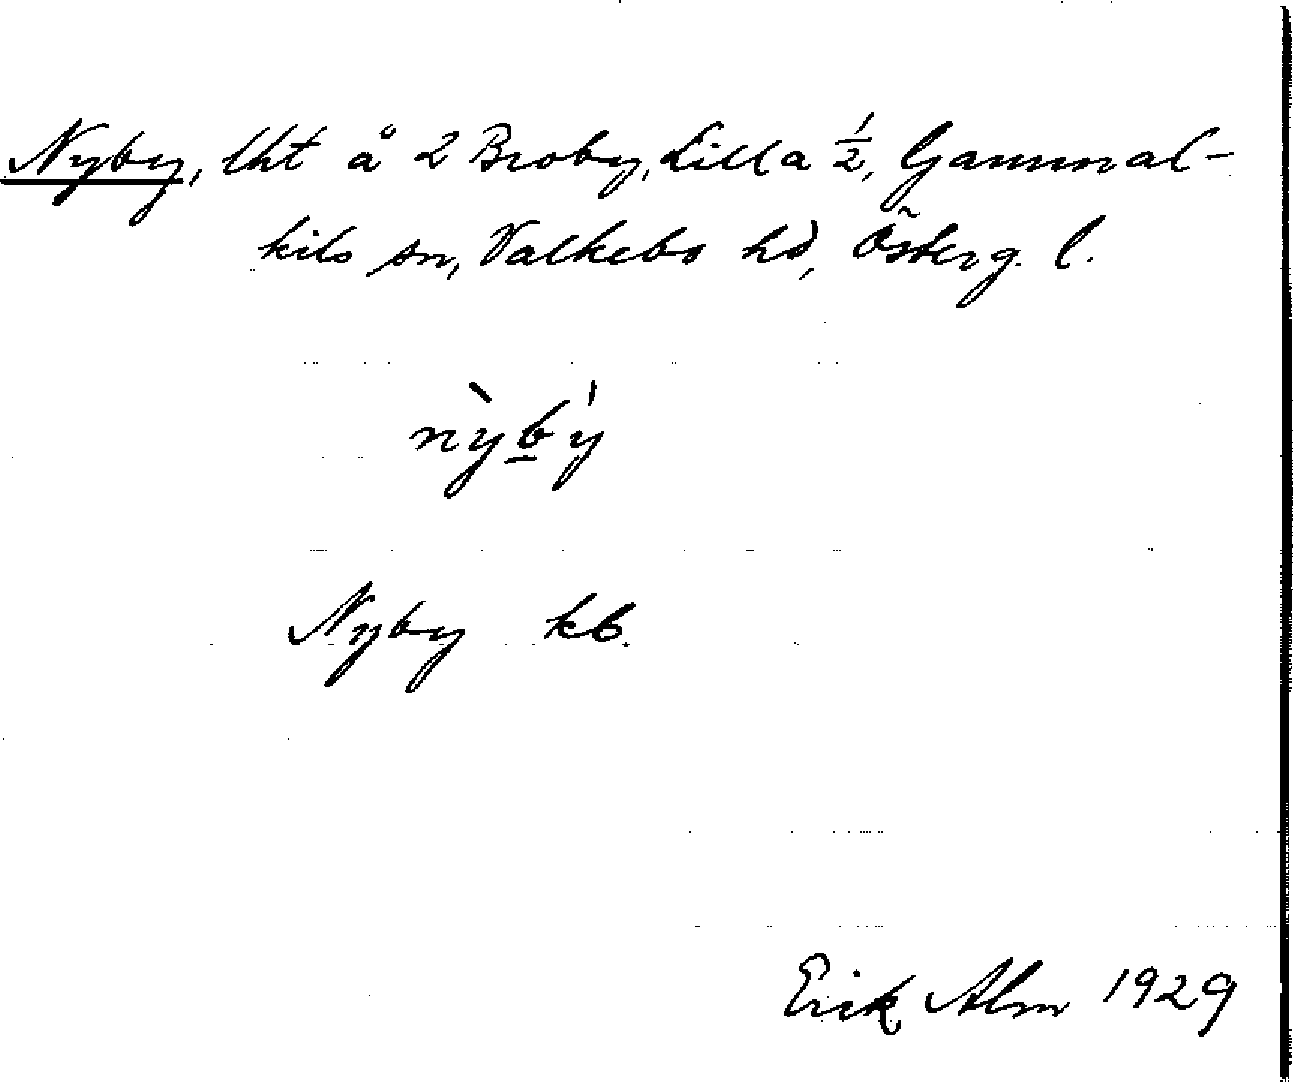 Nyby, lht å 2 Broby, Lilla ½, Gammal-
kils sn, Valkebo hd, Österg. l.
nỳbý
Nyby kb.
Erik Alm 1929